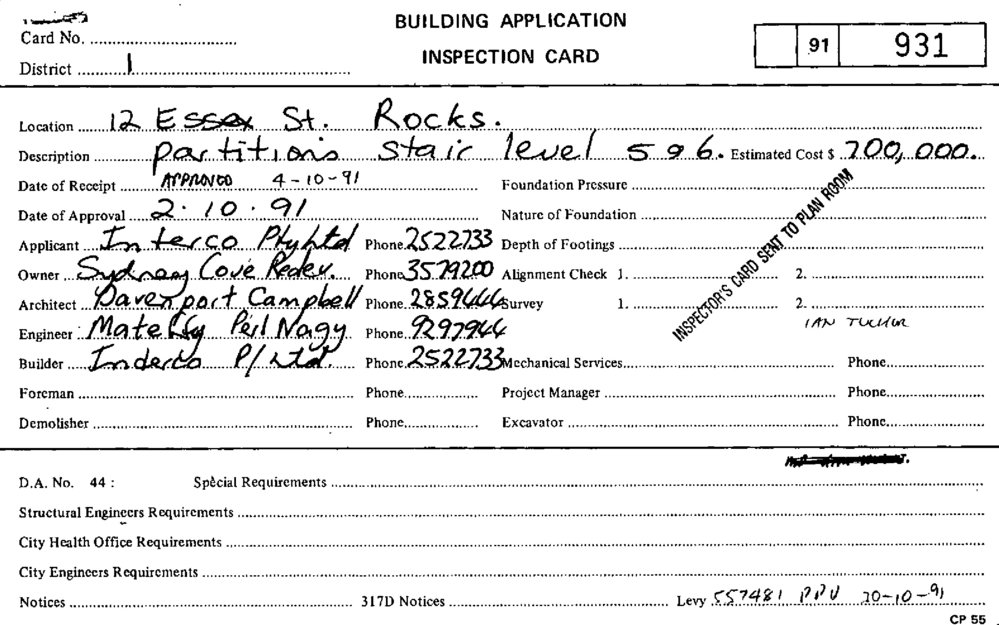 BUILDING APPLICATION
INSPECTION CARD
Card No.
District 1
91 931
Location 12 Essex St. Rocks.
Description partitions stair level 5 & 6. Estimated Cost $ 700,000.
Date of Receipt APPROVED 4-10-91 Foundation Pressure
Date of Approval 2.10.91 Nature of Foundation
Applicant Interco Pty Ltd Phone 2522733 Depth of Footings
Owner Sydney Cove Redev. Phone 3579200 Alignment Check 1. 2.
Architect Davenport Campbell Phone 2859444 Survey 1. 2.
INSPECTOR'S CARD SENT TO PLAN ROOM
IAN
Engineer Phone 9297944
Builder Inderco P/Ltd. Phone 2522733 Mechanical Services Phone
Foreman Phone Project Manager Phone
Demolisher Phone Excavator Phone
D.A. No. 44 : Special Requirements
Structural Engineers Requirements
City Health Office Requirements
City Engineers Requirements
Notices 317D Notices Levy 557481 -10-91
CP 55